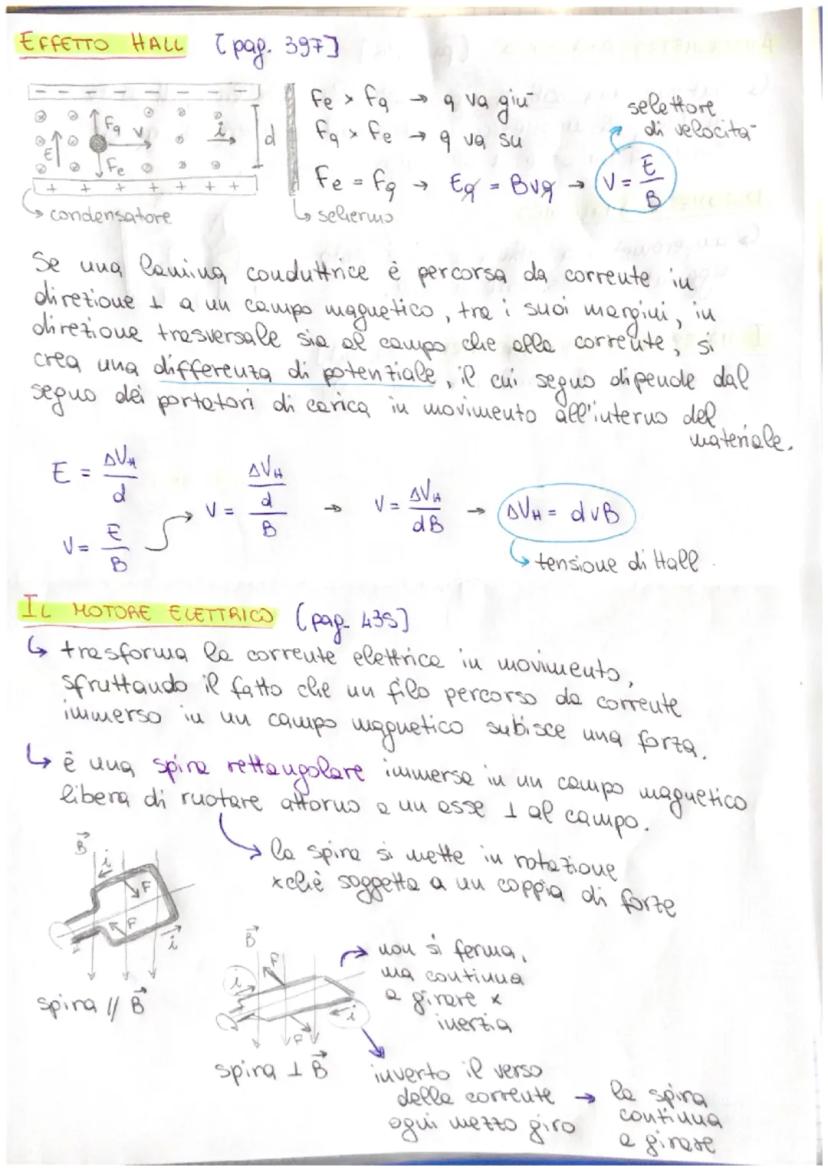 EFFETTO HALL [pag. 397]
Fe > Fq → q va giù
Fq > Fe → q va su
Fe = Fq → Eq = Bvq → V = E/B
selettore
di velocità
Fq V i d
E Fe
condensatore
schermo
Se una lamina conduttrice è percorsa da corrente in
direzione ⊥ a un campo magnetico, tra i suoi margini, in
direzione trasversale sia al campo che alla corrente, si
crea una differenza di potenziale, il cui segno dipende dal
segno dei portatori di carica in movimento all'interno del
materiale.
E = ΔVH/d
V = E/B
V = (ΔVH/d)/B → V = ΔVH/dB → ΔVH = dvB
tensione di Hall
IL MOTORE ELETTRICO [pag. 435]
↳ trasforma la corrente elettrica in movimento,
sfruttando il fatto che un filo percorso da corrente
immerso in un campo magnetico subisce una forza.
↳ è una spira rettangolare immersa in un campo magnetico
libera di ruotare attorno a un asse ⊥ al campo.
↳ la spira si mette in rotazione
xchè soggetta a un coppia di forze
B i F
F i
spira // B
B F i
i F
spira ⊥ B
non si ferma,
ma continua
a girare x
inerzia
inverto il verso
della corrente → la spira
ogni mezzo giro continua
a girare